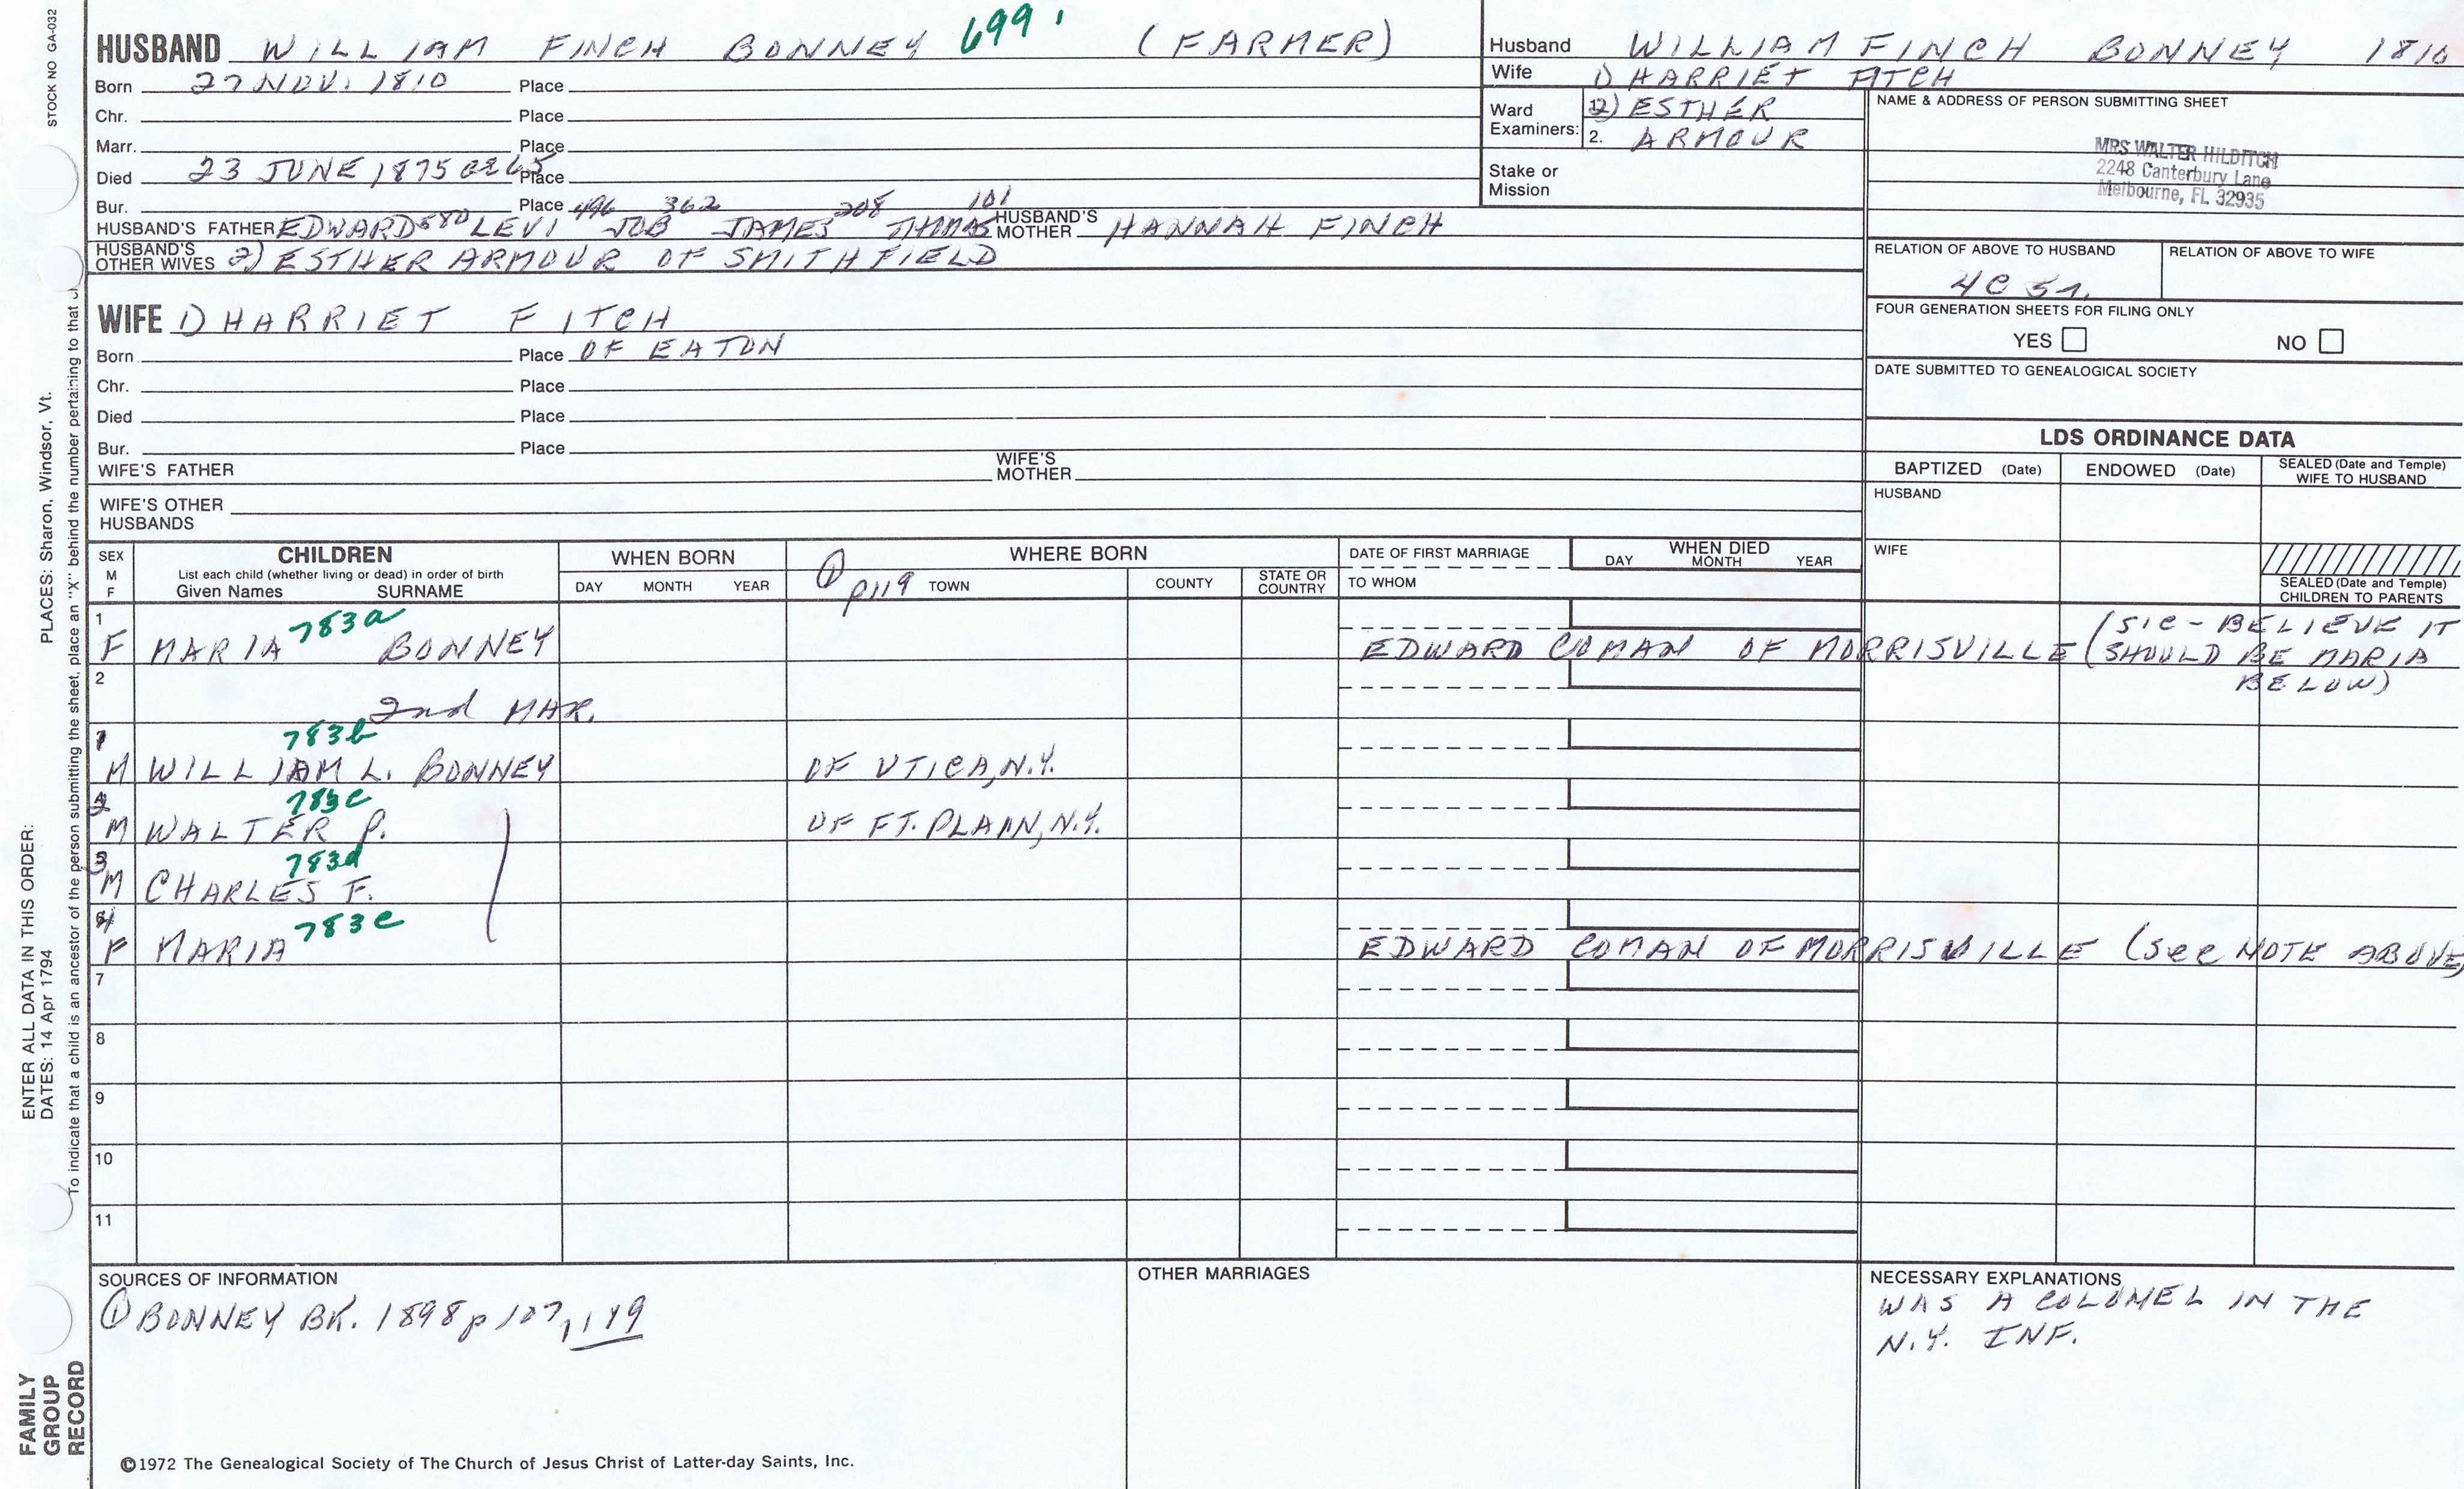 STOCK NO GA-032
HUSBAND WILLIAM FINCH BONNEY 699 (FARMER)
Born 27 NOV. 1810 Place
Chr. Place
Marr. Place
Died 23 JUNE 1875 ae 65 Place
Bur. Place 496 362 208 101
HUSBAND'S FATHER EDWARD 580 LEVI JOB JAMES THOMAS HUSBAND'S MOTHER HANNAH FINCH
HUSBAND'S OTHER WIVES 2) ESTHER ARMOUR OF SMITHFIELD
WIFE 1) HARRIET FITCH
Born Place OF EATON
Chr. Place
Died Place
Bur. Place
WIFE'S FATHER WIFE'S MOTHER
WIFE'S OTHER HUSBANDS
Husband WILLIAM FINCH BONNEY 1810
Wife 1) HARRIET FITCH
Ward Examiners: 2) ESTHER
2. ARMOUR
Stake or Mission
NAME & ADDRESS OF PERSON SUBMITTING SHEET
MRS WALTER HILDITCH
2248 Canterbury Lane
Melbourne, FL 32935
RELATION OF ABOVE TO HUSBAND RELATION OF ABOVE TO WIFE
4C 5r.
FOUR GENERATION SHEETS FOR FILING ONLY
YES NO
DATE SUBMITTED TO GENEALOGICAL SOCIETY
LDS ORDINANCE DATA
BAPTIZED (Date) ENDOWED (Date) SEALED (Date and Temple) WIFE TO HUSBAND
HUSBAND
WIFE
SEALED (Date and Temple) CHILDREN TO PARENTS
SEX M F CHILDREN WHEN BORN WHERE BORN DATE OF FIRST MARRIAGE WHEN DIED
List each child (whether living or dead) in order of birth
Given Names SURNAME DAY MONTH YEAR ① p119 TOWN COUNTY STATE OR COUNTRY TO WHOM DAY MONTH YEAR
1 783a
F MARIA BONNEY EDWARD COMAN OF MORRISVILLE (SIC - BELIEVE IT
SHOULD BE MARIA
BELOW)
2
2nd MAR.
1 783b
M WILLIAM L. BONNEY OF UTICA, N.Y.
2 783c
M WALTER P. OF FT. PLAIN, N.Y.
3 783d
M CHARLES F.
4 783e
F MARIA EDWARD COMAN OF MORRISVILLE (See NOTE ABOVE
7
8
9
10
11
SOURCES OF INFORMATION
① BONNEY BK. 1898 p 107, 119
OTHER MARRIAGES
NECESSARY EXPLANATIONS
WAS A COLONEL IN THE
N.Y. INF.
©1972 The Genealogical Society of The Church of Jesus Christ of Latter-day Saints, Inc.
FAMILY GROUP RECORD
ENTER ALL DATA IN THIS ORDER:
DATES: 14 Apr 1794 PLACES: Sharon, Windsor, Vt.
To indicate that a child is an ancestor of the person submitting the sheet, place an "X" behind the number pertaining to that